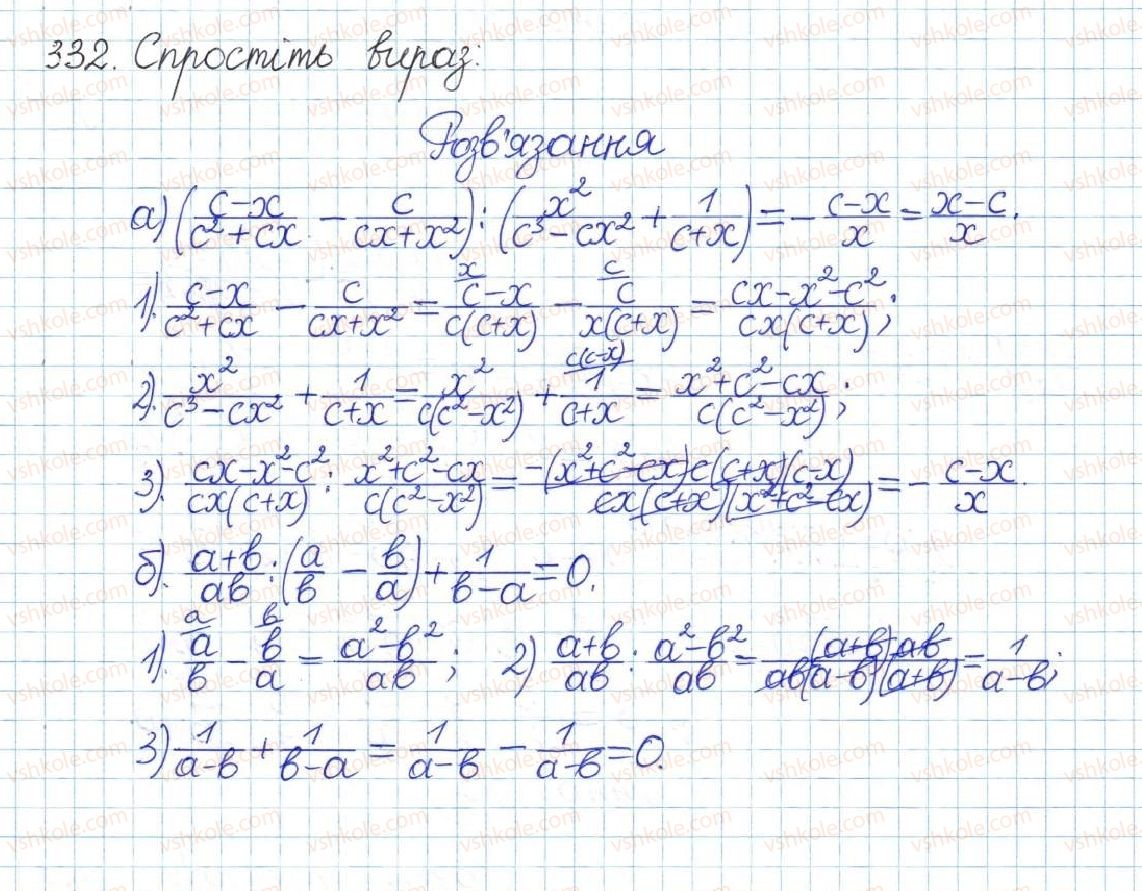 332. Спростіть вираз:
Розв'язання
а) ((c-x)/(c²+cx) - c/(cx+x²)) : (x²/(c³-cx²) + 1/(c+x)) = -(c-x)/x = (x-c)/x.
1). (c-x)/(c²+cx) - c/(cx+x²) = x/ (c-x)/(c(c+x)) - c/ c/(x(c+x)) = (cx-x²-c²)/(cx(c+x));
2). x²/(c³-cx²) + 1/(c+x) = x²/(c(c²-x²)) + c(c-x)/ 1/(c+x) = (x²+c²-cx)/(c(c²-x²));
3). (cx-x²-c²)/(cx(c+x)) : (x²+c²-cx)/(c(c²-x²)) = (-(x²+c²-cx)c(c+x)(c-x))/(cx(c+x)(x²+c²-cx)) = -(c-x)/x.
б). (a+b)/(ab) : (a/b - b/a) + 1/(b-a) = 0.
1). a/ a/b - b/ b/a = (a²-b²)/(ab); 2) (a+b)/(ab) : (a²-b²)/(ab) = ((a+b)ab)/(ab(a-b)(a+b)) = 1/(a-b);
3) 1/(a-b) + 1/(b-a) = 1/(a-b) - 1/(a-b) = 0.
vshkole.com